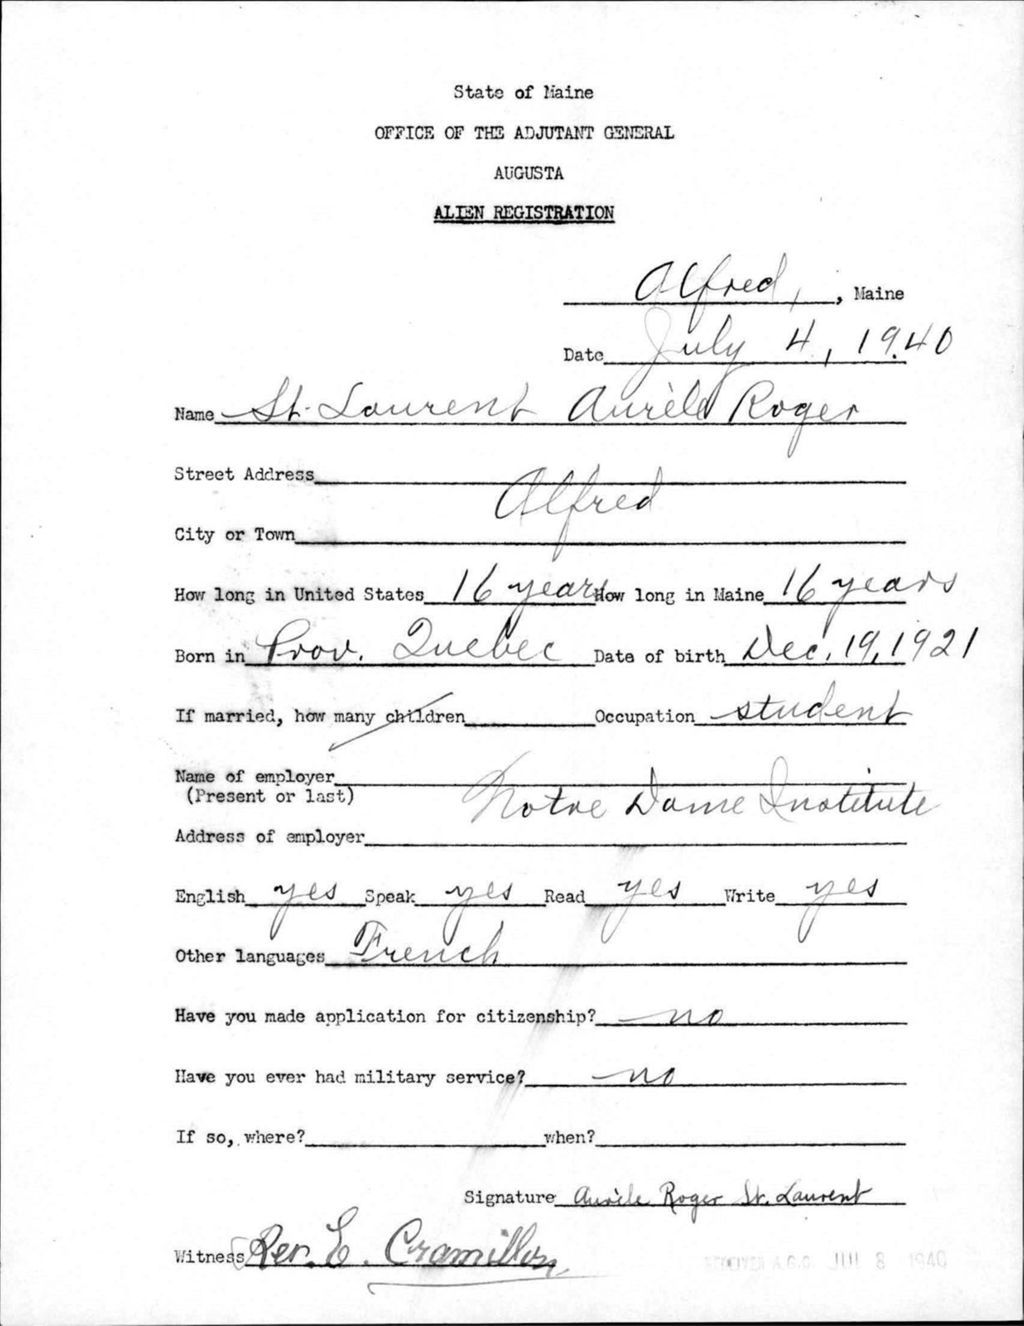 State of Maine
OFFICE OF THE ADJUTANT GENERAL
AUGUSTA
ALIEN REGISTRATION
Alfred, , Maine
Date July 4, 1940
Name St. Laurent Aurèle Roger
Street Address
Alfred
City or Town
How long in United States 16 years How long in Maine 16 years
Born in Prov. Quebec Date of birth Dec. 19, 1921
If married, how many children Occupation student
Name of employer
(Present or last) Notre Dame Institute
Address of employer
English yes Speak yes Read yes Write yes
Other languages French
Have you made application for citizenship? no
Have you ever had military service? no
If so, where? when?
Signature Aurèle Roger St. Laurent
Witness Rev. E. Cramillon
RECEIVED A.G.O. JUL 8 1940